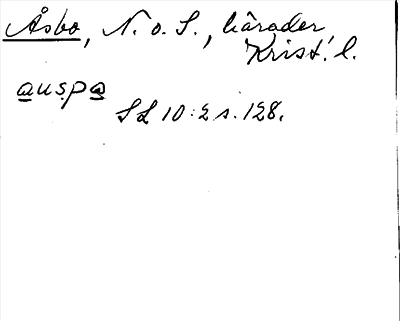 Åsbo, N. o. S., härader,
Krist. l.
auspa
SL 10:2 s. 128.